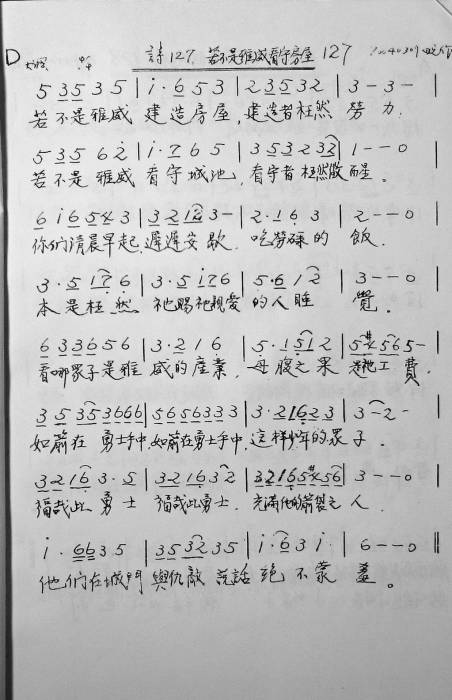 D 詩127. 若不是雅威看守房屋 127
5 35 3 5 | i · 6 5 3 | 2 3 5 3 2 | 3 - 3 - |
若不是雅威 建造房屋 建造者枉然 勞力.
5 35 6 2 | i · 7 6 5 | 3 5 3 2 32 | 1 - - 0 |
若不是雅威 看守城池, 看守者枉然儆而醒。
6 i 6 5 4 3 | 3 2 12 3 - | 2 · 1 6 3 | 2 - - 0 |
你們清晨早起, 遲遲安歇, 吃勞碌的 飯.
3 · 5 i 7 6 | 3 · 5 i 7 6 | 5 · 6 1 2 | 3 - - 0 |
本是枉然 祂賜祂親愛的人睡 覺.
6 3 3 6 5 6 | 3 · 2 1 6 | 5 · 1 5 1 2 | 5 #4 5 6 5 - |
看哪眾子是雅 威的產業, 母腹之果 是祂工 費.
3 5 3 5 3 6 6 6 | 5 6 5 6 3 3 3 | 3 · 2 1 6 2 3 | 3 - 2 - |
如箭在 勇士手中, 如箭在勇士手中, 這样少年的眾子.
3 2 1 6 3 · 5 | 3 2 1 6 3 2 | 3 2 1 6 5 #4 5 6 | 3 - - 0 |
福哉此 勇士 福哉此勇士. 充滿他的箭袋之人.
i · 6 6 3 5 | 3 5 3 2 3 5 | i · 6 3 i | 6 - - 0 ‖
他們在城門 與仇敵 說話 絕 不蒙 羞。